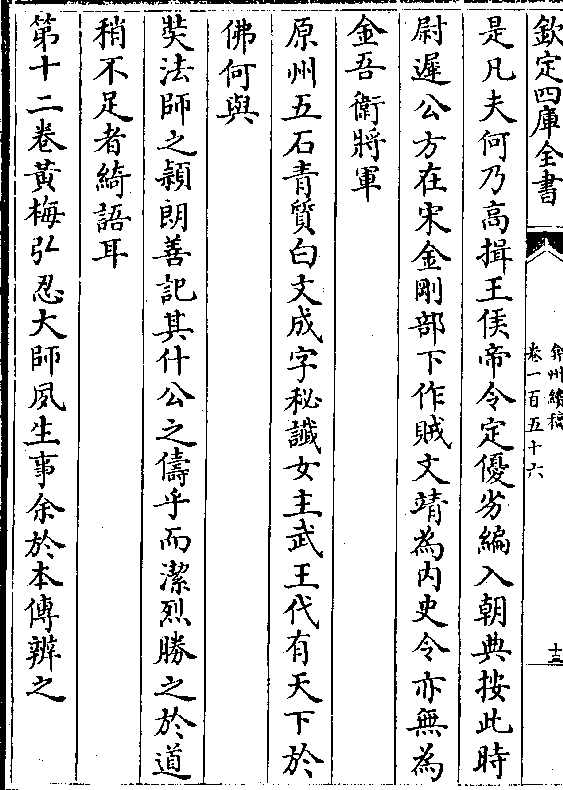 欽定四庫全書
弇州續稿
卷一百五十六
十三
是凡夫何乃高揖王侯帝令定優劣編入朝典按此時
尉遲公方在宋金剛部下作賊文靖為内史令亦無為
金吾衛將軍
原州五石青質白文成字秘讖女主武王代有天下於
佛何與
奘法師之穎朗善記其什公之儔乎而潔烈勝之於道
稍不足者綺語耳
第十二卷黃梅弘忍大師夙生事余於本傳辨之